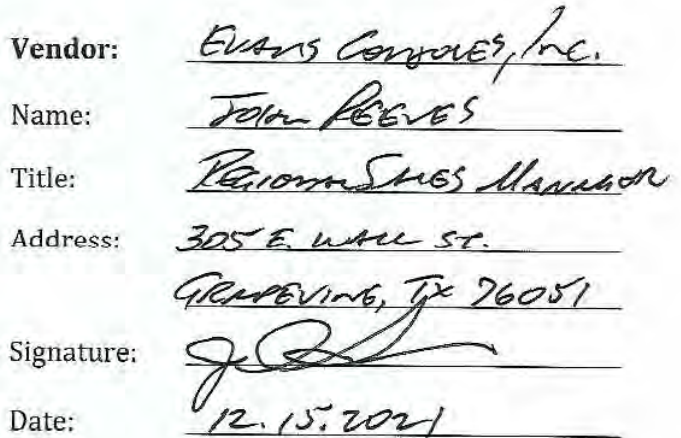 Vendor: Evans Consoles, Inc.
Name: John Reeves
Title: Regional Sales Manager
Address: 305 E. Wall St.
Grapevine, TX 76051
Signature:
Date: 12.15.2021